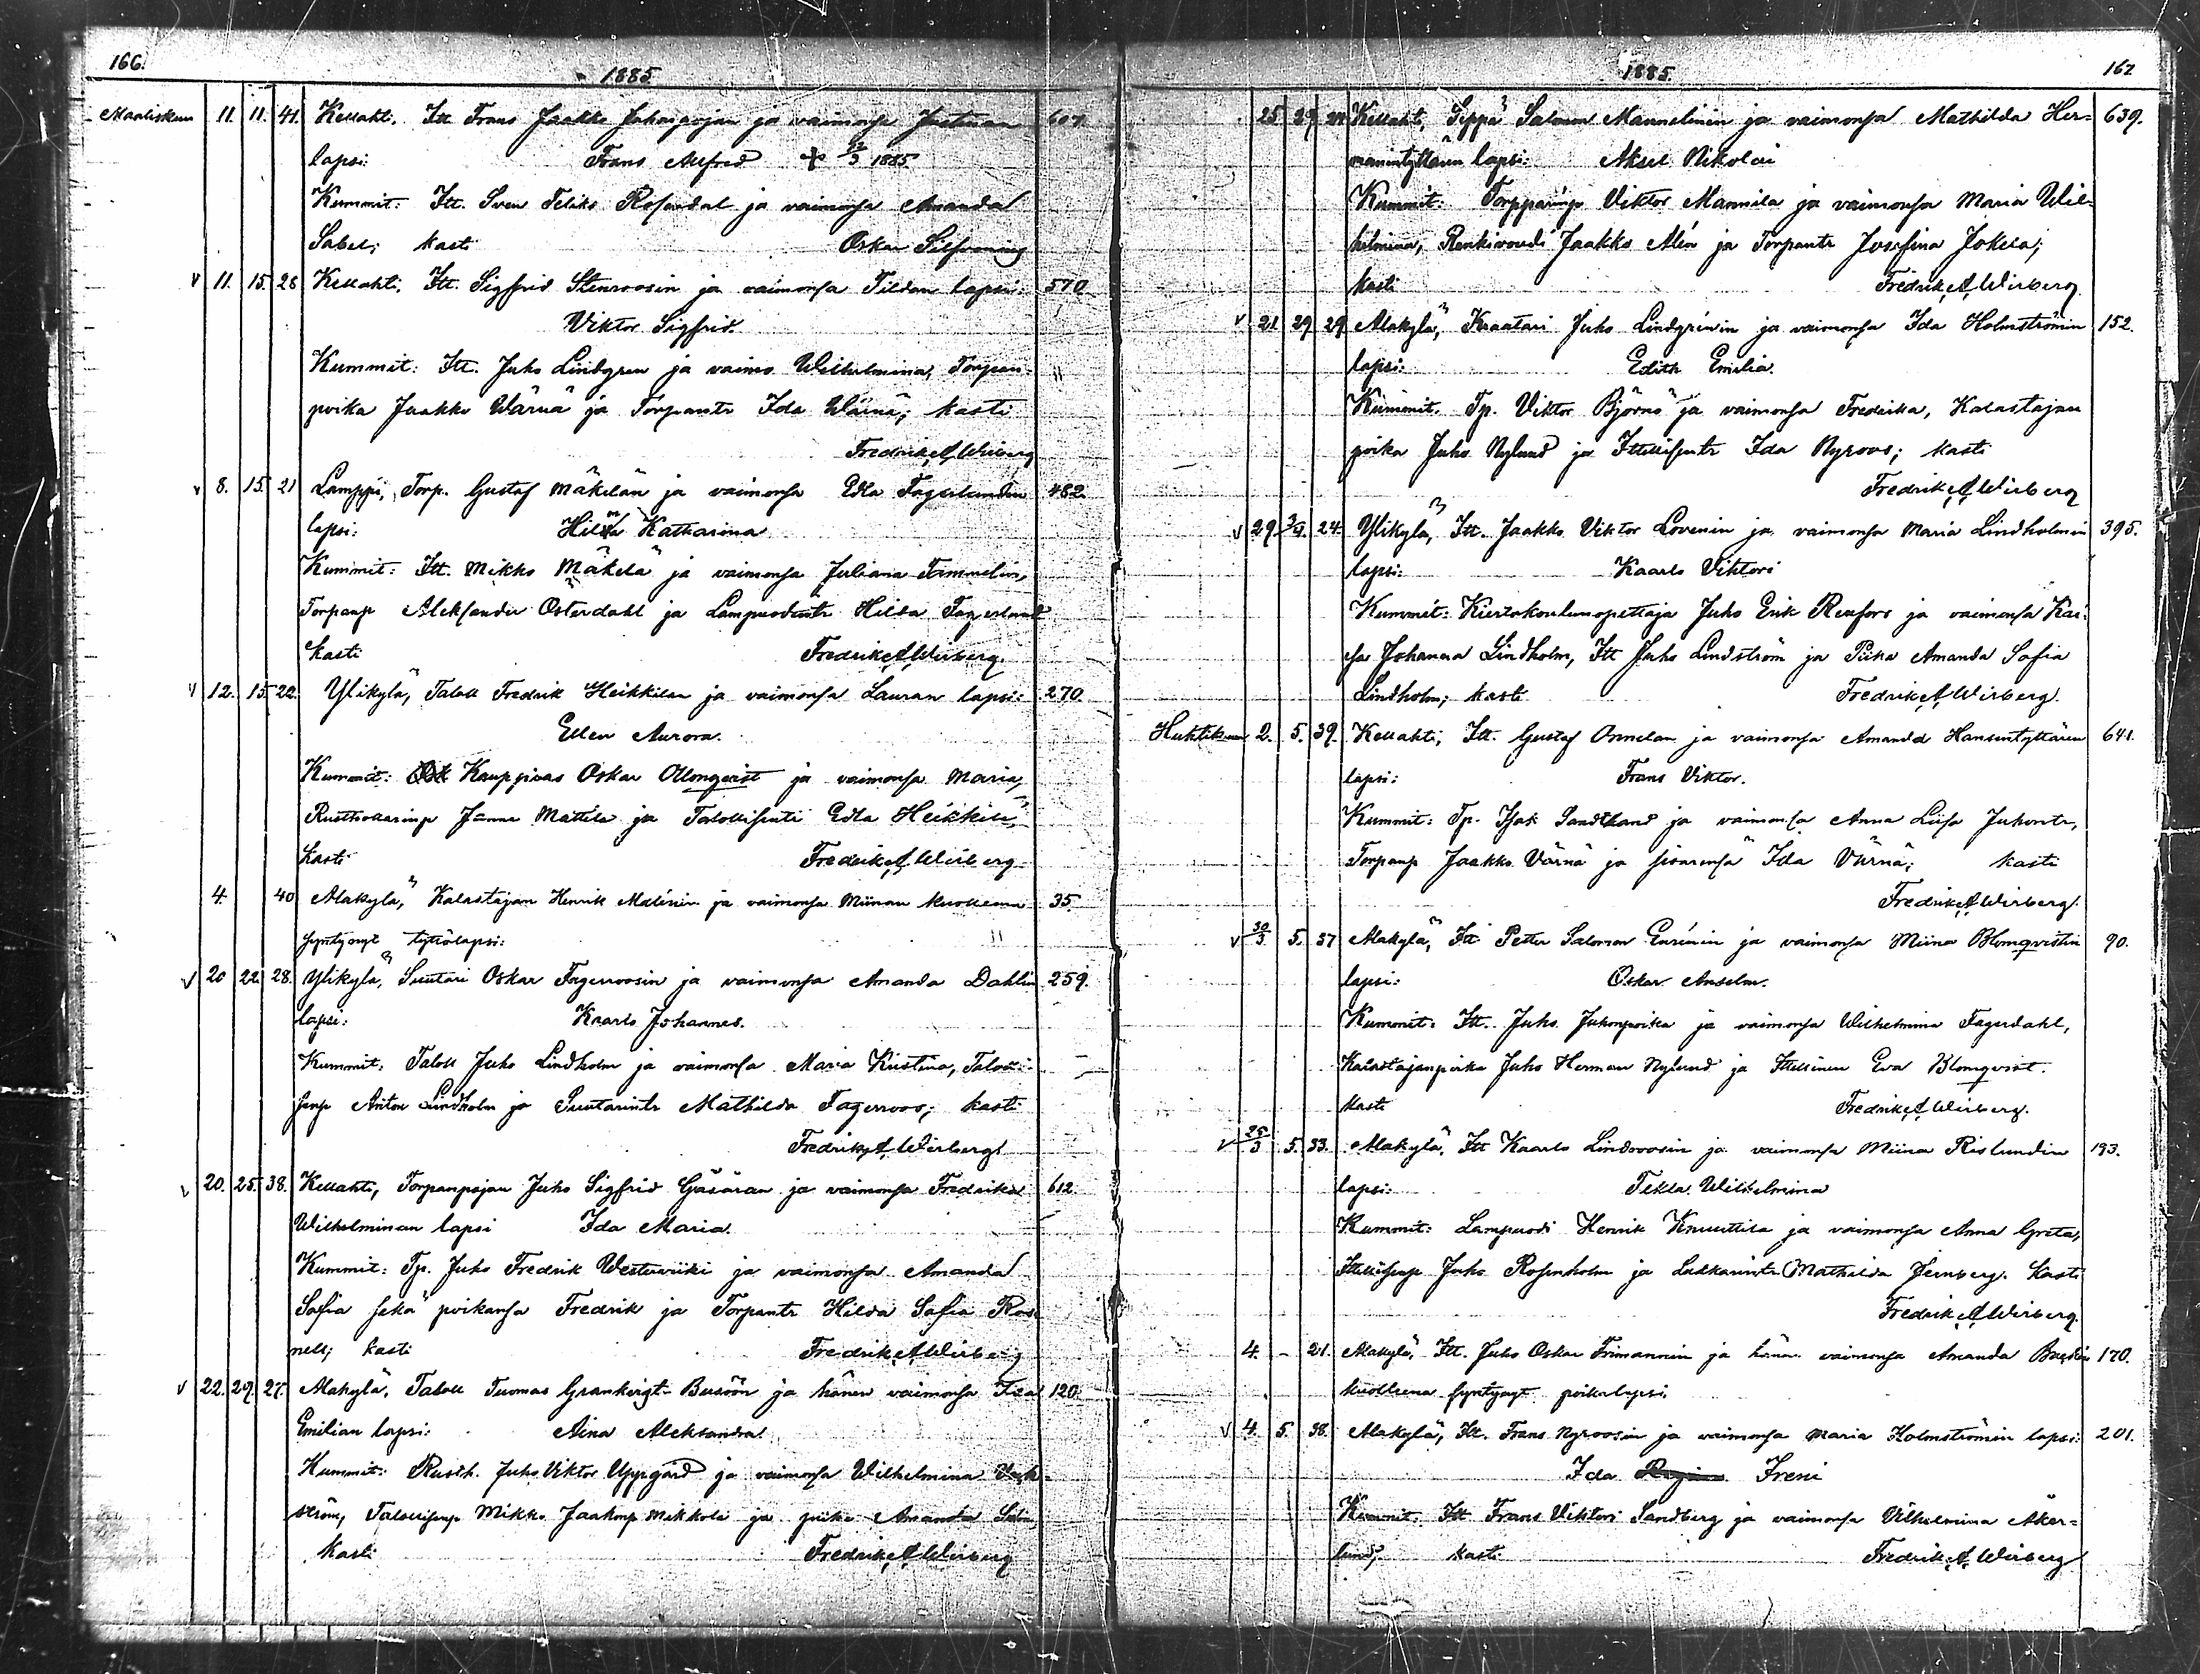 166.
1885
Maaliskuu 11. 11. 41. Kellahti. Itt Frans Jaakko Juhonpojan ja vaimonsa Justinan 607
lapsi: Frans Alfred + 22/3 1885
Kummit: Itt. Sven Feliks Rosendal ja vaimonsa Amanda
Sabel; kasti Oskar Silfvening
v 11. 15. 28 Kellahti. Itt. Sigfrid Stenroosin ja vaimonsa Tildan lapsi: 570
Viktor Sigfrid.
Kummit: Itt. Juho Lindgren ja vaimo Wilhelmina, Torpan-
poika Jaakko Wärnä ja Torpantr Ida Wärnä; kasti
Fredrik A Wirberg
v 8. 15. 21 Lamppi, Torp. Gustaf Mäkelän ja vaimonsa Edla Fagerlundin 482.
lapsi: Hilma Katharina
Kummit: Itt. Mikko Mäkelä ja vaimonsa Juliana Timmelin,
Torpanp Aleksander Österdahl ja Lampuodintr Hilda Fagerlund
kasti Fredrik A Wirberg.
v 12. 15. 22. Ylikylä, Taloll Fredrik Heikkilän ja vaimonsa Lauran lapsi: 270.
Ellen Aurora.
Kummit: Kauppias Oskar Ollonqvist ja vaimonsa Maria,
Rusthollarinp Janne Mattila ja Talollisentr Edla Heikkilä,
kasti Fredrik A Wirberg
4. 40 Alakylä, Kalastajan Henrik Malénin ja vaimonsa Miinan kuolleena 35.
syntynyt tyttölapsi:
v 20 22. 28. Ylikylä, Suutari Oskar Fagerroosin ja vaimonsa Amanda Dahlin 259.
lapsi: Kaarlo Johannes.
Kummit: Taloll Juho Lindholm ja vaimonsa Maria Kristina, Talolli-
senp Anton Lindholm ja Suutarintr Mathilda Fagerroos; kasti
Fredrik A Wirberg
v 20. 25. 38. Kellahti, Torpanpojan Juho Sigfrid Gäsärän ja vaimonsa Fredrika 612
Wilhelminan lapsi Ida Maria.
Kummit: Tp. Juho Fredrik Westerviiki ja vaimonsa Amanda
Sofia sekä poikansa Fredrik ja Torpantr Hilda Sofia Ros-
nell; kasti Fredrik A Wirberg
v 22. 29. 27. Alakylä, Taloll Tuomas Grankvist-Busöön ja hänen vaimonsa 120.
Emilian lapsi: Aina Aleksandra.
Kummit: Rusth. Juho Viktor Uppgård ja vaimonsa Wilhelmina
ström, Talollisenp Mikko Jaakonp Mikkola ja piika Amanda
kasti Fredrik A Wirberg
167
1885.
25 29 24 Kellaht, Seppä Salomon Mannelinin ja vaimonsa Mathilda Her- 639.
manintyttären lapsi: Aksel Nikolai
Kummit: Torpparinp Viktor Mannila ja vaimonsa Maria Wil-
helmina, Renkivouti Jaakko Alén ja Torpantr Josefina Jokela;
kasti Fredrik A Wirberg
v 21 29 29 Alakylä, Kraatari Juho Lindgrénin ja vaimonsa Ida Holmströmin 152.
lapsi: Edith Emilia.
Kummit. Tp. Viktor Björni ja vaimonsa Fredrika, Kalastajan
poika Juho Nylund ja Ittellisentr Ida Nyroos; kasti
Fredrik A Wirberg
v 29. 3/4. 24. Ylikylä, Itt. Jaakko Viktor Lovenin ja vaimonsa Maria Lindholmin 395.
lapsi: Kaarlo Viktori
Kummit: Kiertokoulunopettaja Juho Erik Renfors ja vaimonsa Kai-
sa Johanna Lindholm, Itt Juho Lindström ja Piika Amanda Sofia
Lindholm; kasti Fredrik A Wirberg.
Huhtikuu 2. 5. 39. Kellahti, Itt. Gustaf Onnelan ja vaimonsa Amanda Hansintyttären 641.
lapsi: Frans Viktor.
Kummit: Tp. Isak Sandstrand ja vaimonsa Anna Liisa Juhontr,
Torpanp Jaakko Värnä ja sisarensa Ida Värnä; kasti
Fredrik A Wirberg.
v 30/3 5. 37 Alakylä, Itt Petter Salomon Enrénin ja vaimonsa Miina Blomqvistin 90.
lapsi: Oskar Anselm.
Kummit: Itt. Juho Juhonpoika ja vaimonsa Wilhelmina Fagerdahl,
Kalastajanpoika Juho Herman Nylund ja Ittellinen Eva Blomqvist.
kasti Fredrik A Wirberg.
v 25/3 5. 33. Alakylä, Itt Kaarlo Lindroosin ja vaimonsa Miina Rislundin 193.
lapsi: Tekla Wilhelmina
Kummit: Lampuodi Henrik Knuuttila ja vaimonsa Anna Greta,
Ittellisenp Juho Rosenholm ja Mathilda Fernberg. Kasti
Fredrik A Wirberg.
4. - 21. Alakylä, Itt. Juho Oskar Frimannin ja hänen vaimonsa Amanda 170.
kuolleena syntynyt poikalapsi.
v 4. 5. 38. Alakylä, Itt. Frans Nyroosin ja vaimonsa Maria Holmströmin lapsi: 201.
Ida Ireni
Kummit: Itt Frans Viktori Sandberg ja vaimonsa Vilhelmina Åker-
lund; kasti Fredrik A Wirberg